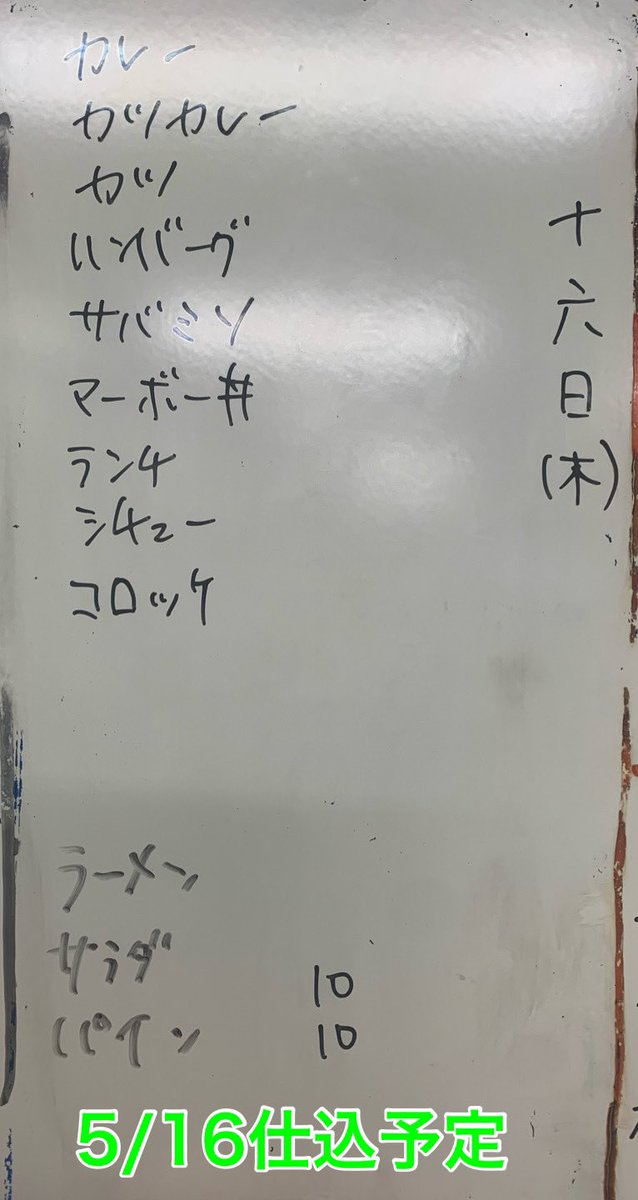 十六日(木)
カレー
カツカレー
カツ
ハンバーグ
サバミソ
マーボー丼
ランチ
シチュー
コロッケ
ラーメン
サラダ 10
パイン 10
5/16仕込予定